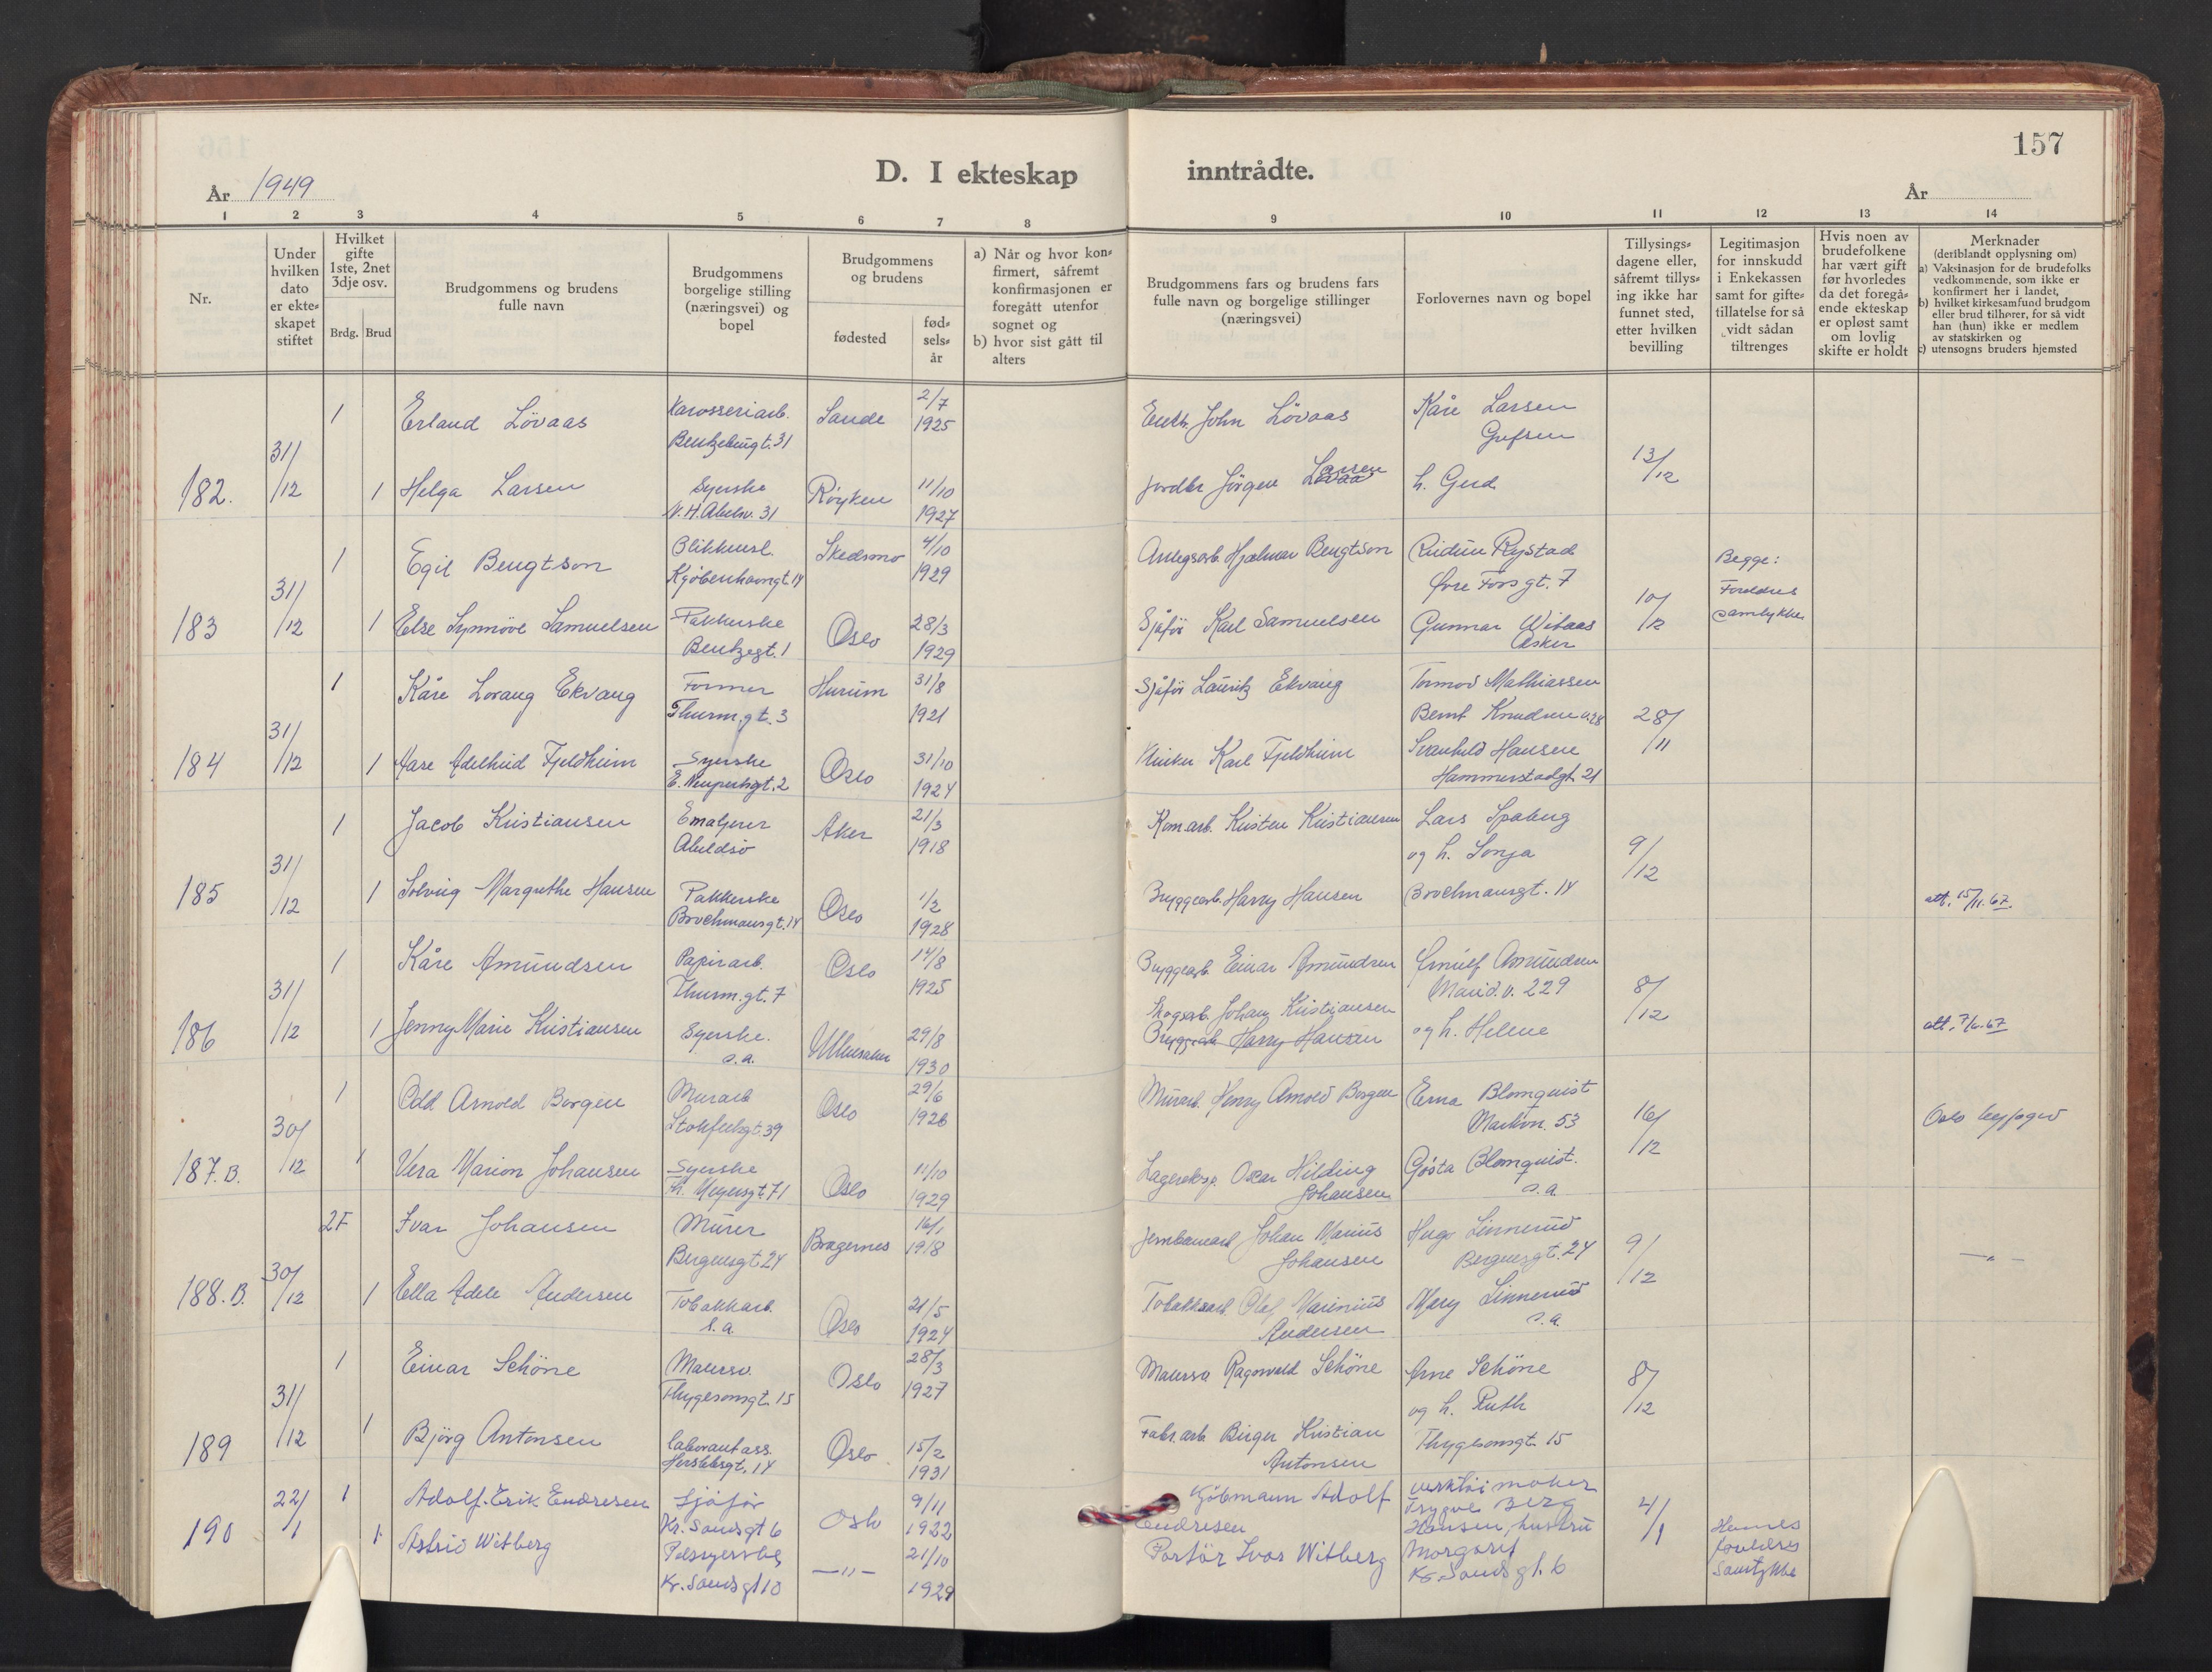 157
D. I ekteskap inntrådte.
År 1949
År
1 2 3 4 5 6 7 8 9 10 11 12 13 14
Nr.
Under
hvilken
dato
er ekte=
skapet
stiftet
Hvilket
gifte
1ste, 2net
3dje osv.
Brdg. Brud
Brudgommens og brudens
fulle navn
Brudgommens
borgelige stilling
(næringsvei) og
bopel
Brudgommens
og brudens
fødested
fød=
sels=
år
a) Når og hvor kon=
firmert, såfremt
konfirmasjonen er
foregått utenfor
sognet og
b) hvor sist gått til
alters
Brudgommens fars og brudens fars
fulle navn og borgelige stillinger
(næringsvei)
Forlovernes navn og bopel
Tillysings=
dagene eller,
såfremt tillys=
ing ikke har
funnet sted,
etter hvilken
bevilling
Legitimasjon
for innskudd
i Enkekassen
samt for gifte=
tillatelse for så
vidt sådan
tiltrenges
Hvis noen av
brudefolkene
har vært gift
før hvorledes
da det foregå=
ende ekteskap
er opløst samt
om lovlig
skifte er holdt
Merknader
(deriblandt opplysning om)
a) Vaksinasjon for de brudefolks
vedkommende, som ikke er
konfirmert her i landet,
b) hvilket kirkesamfund brudgom
eller brud tilhører, for så vidt
han (hun) ikke er medlem
av statskirken og
c) utensogns bruders hjemsted
182. 31/12
1 Erland Lövaas Karosseriarb. Sande 2/7 1925 John Lövaas Kåre Larsen
Bentzebugt. 31 Grefsen
1 Helga Larsen Syerske Röyken 11/10 1927 Jörgen Larsen h. Gerd 13/12
N.H. Abelsv. 31
183 31/12
1 Egil Bengtson Blikkensl. Skedsmo 4/10 1929 Anlegsarb. Hjalmar Bengtson Rystad Begge:
Kjöbenhavngt. 14 Øvre Fossgt. 7 Foreldres
1 Else Synnöve Samuelsen Pakkerske Oslo 28/3 1929 Sjåför Karl Samuelsen Gunnar 10/12 samtykke
Bentzegt. 1 Asker
184 31/12
1 Kåre Lorang Ekvang Former Hurum 31/8 1921 Sjåför Lauritz Ekvang Tormod Mathiassen
Thurm.gt. 3 Bernt Knudsen v. 28 28/11
1 Aase Adelheid Fjeldheim Syerske Oslo 31/10 1924 Karl Fjeldheim Svanhild Hansen
E. Neupertsgt. 2 Hammerstadgt 21
185 31/12
1 Jacob Kristiansen Emaljerer Aker 21/3 1918 Kom.arb. Kristen Kristiansen Lars
Abeldsö og h. Sonja 9/12
1 Solveig Margrethe Hansen Pakkerske Oslo 1/2 1928 Bryggearb. Harry Hansen Brochmannsgt. 14 att. 15/11.67.
Brochmansgt. 14
186 31/12
1 Kåre Amundsen Papirarb. Oslo 14/8 1925 Bryggearb. Einar Amundsen Arnulf Amundsen
Thurm.gt. 7 Marid.v. 229 8/12
1 Jenny Marie Kristiansen Syerske. Ullensaker 29/8 1930 Skogsarb. Johan Kristiansen og h. Helene att.
s.a. Bryggearb. Harry Hansen
187.B. 30/12
1 Odd Arnold Borgen Murarb Oslo 29/6 1926 Murarb. Henry Arnold Borgen Erna Blomquist Oslo byfoged
Stokfletsgt. 39 Markvn. 53 16/12
1 Vera Marion Johansen Syerske Oslo 11/10 1929 Lagereksp. Oscar Hilding Johansen Gösta Blomquist.
Th. Meyersgt. 71 s.a.
188.B. 30/12
2F Ivar Johansen Murer Bragernes 16/1 1918 Jernbanearb Johan Marius Johansen Hugo Linnerud — " —
Bergensgt 24 Bergensgt. 24 9/12
1 Ella Adele Andersen Tobakkarb. Oslo 21/5 1924 Tobakksarb. Olaf Marinius Andersen Mary Linnerud
s.a. s.a.
189 31/12
1 Einar Schöne Malersv. Oslo 28/3 1927 Malersv. Ragnvald Schöne Arne Schöne
Thygesonsgt. 15 og h. Ruth 8/12
1 Björg Antonsen Laborantass. Oslo 15/2 1931 Fabr.arb. Birger Kristian Antonsen Thygesonsgt. 15
Herslebsgt. 14
190 22/1
1 Adolf Erik Endresen Sjåför Oslo 9/11 1922 Kjöbmann Adolf Endresen verktöimaker Trygve Berg 4/1
Chr. Sandsgt 6 Hansen, hustru Hennes
1 Astrid Witberg Pelssyerske — " — 21/10 1929 Portör Ivar Witberg Margarit foreldres
Kr. Sandsgt 10 Kr. Sandsgt. 6 Samtykke